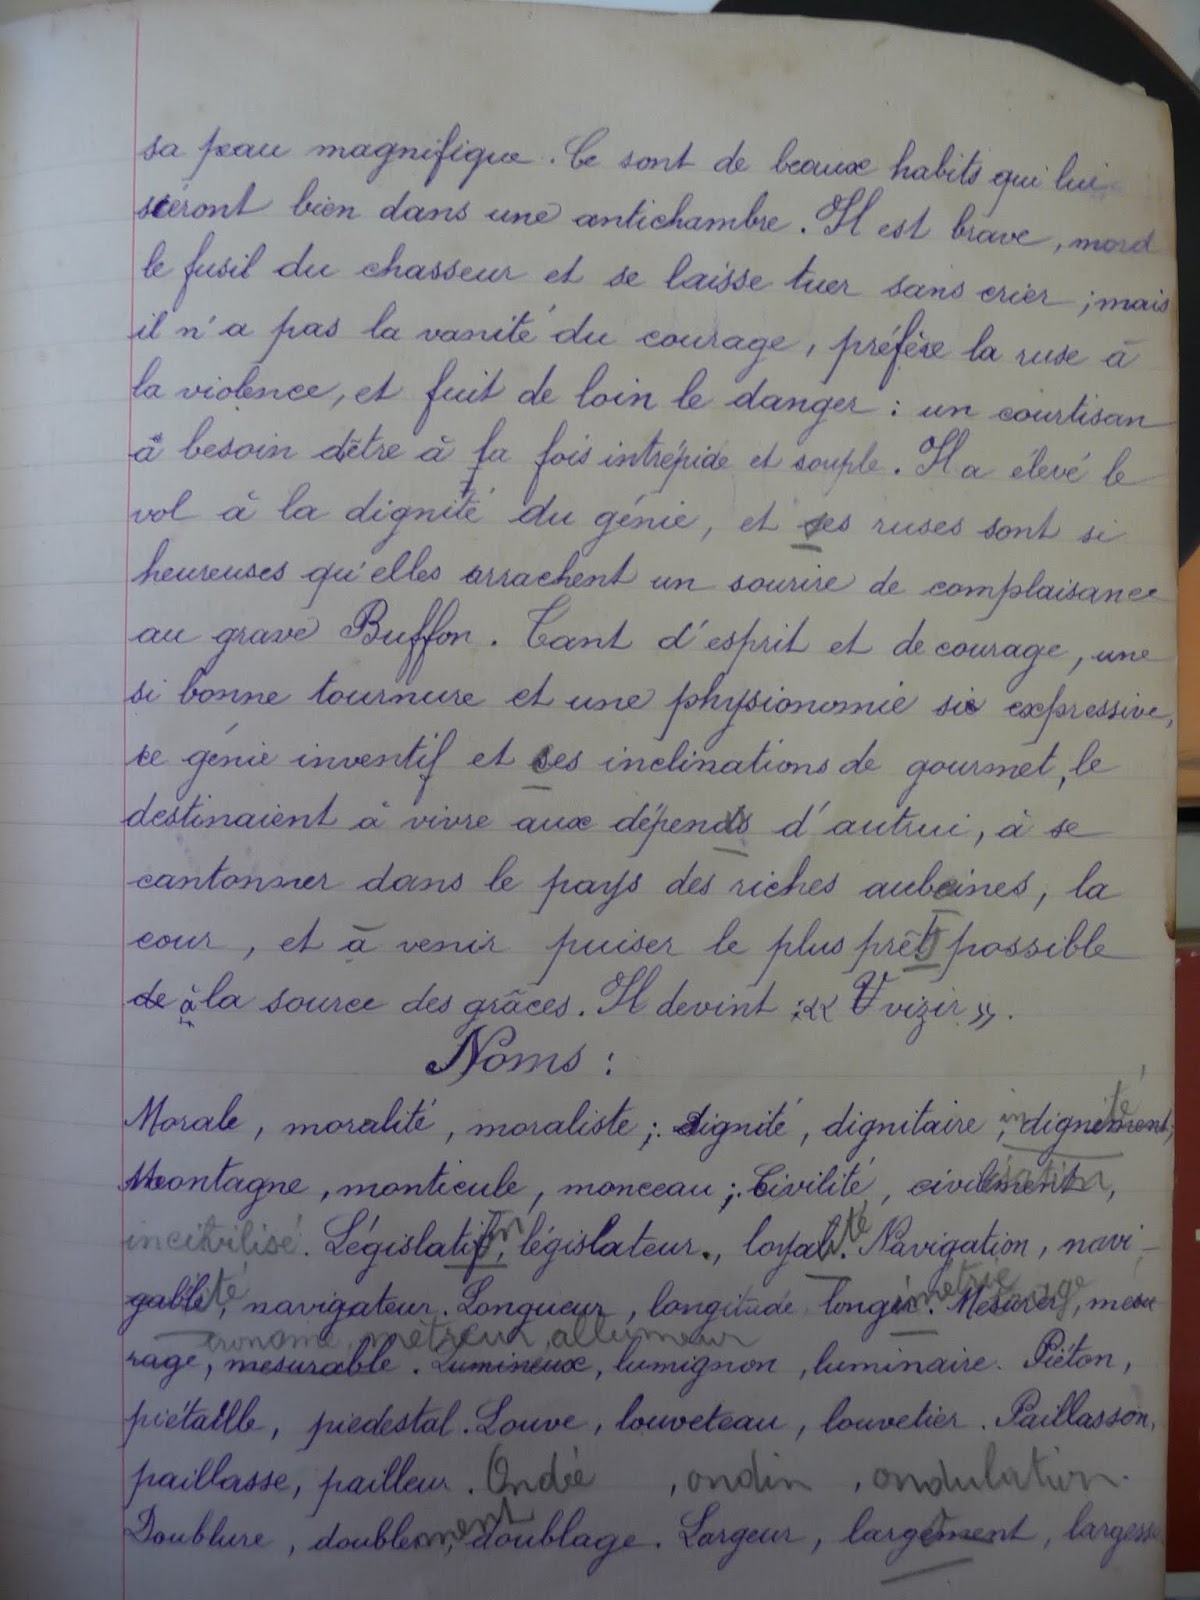 sa peau magnifique. Ce sont de beaux habits qui lui
siéront bien dans une antichambre. Il est brave, mord
le fusil du chasseur et se laisse tuer sans crier ; mais
il n'a pas la vanité du courage, préfère la ruse à
la violence, et fuit de loin le danger : un courtisan
a besoin d'être à la fois intrépide et souple. Il a élevé le
vol à la dignité du génie, et ses ruses sont si
heureuses qu'elles arrachent un sourire de complaisance
au grave Buffon. Tant d'esprit et de courage, une
si bonne tournure et une physionomie si expressive,
ce génie inventif et ses inclinations de gourmet, le
destinaient à vivre aux dépens d'autrui, à se
cantonner dans le pays des riches aubaines, la
cour, et à venir puiser le plus près possible
de à la source des grâces. Il devint : « vizir ».
Noms :
Morale, moralité, moraliste ; dignité, dignitaire, indignité
Montagne, monticule, monceau ; Civilité, civilisation,
incivilisé. Législation, législateur, loyauté. Navigation, navi-
gabilité, navigateur. Longueur, longitude, longimétrie. Mesurage, mesu
chronomètre, métreur, allumeur
rage, mesurable. Lumineux, lumignon, luminaire. Piéton,
piétaille, piedestal. Louve, louveteau, louvetier. Paillasson,
paillasse, pailleur. Ondée, ondin, ondulation.
Doublure, doublement, doublage. Largeur, largement, largesse